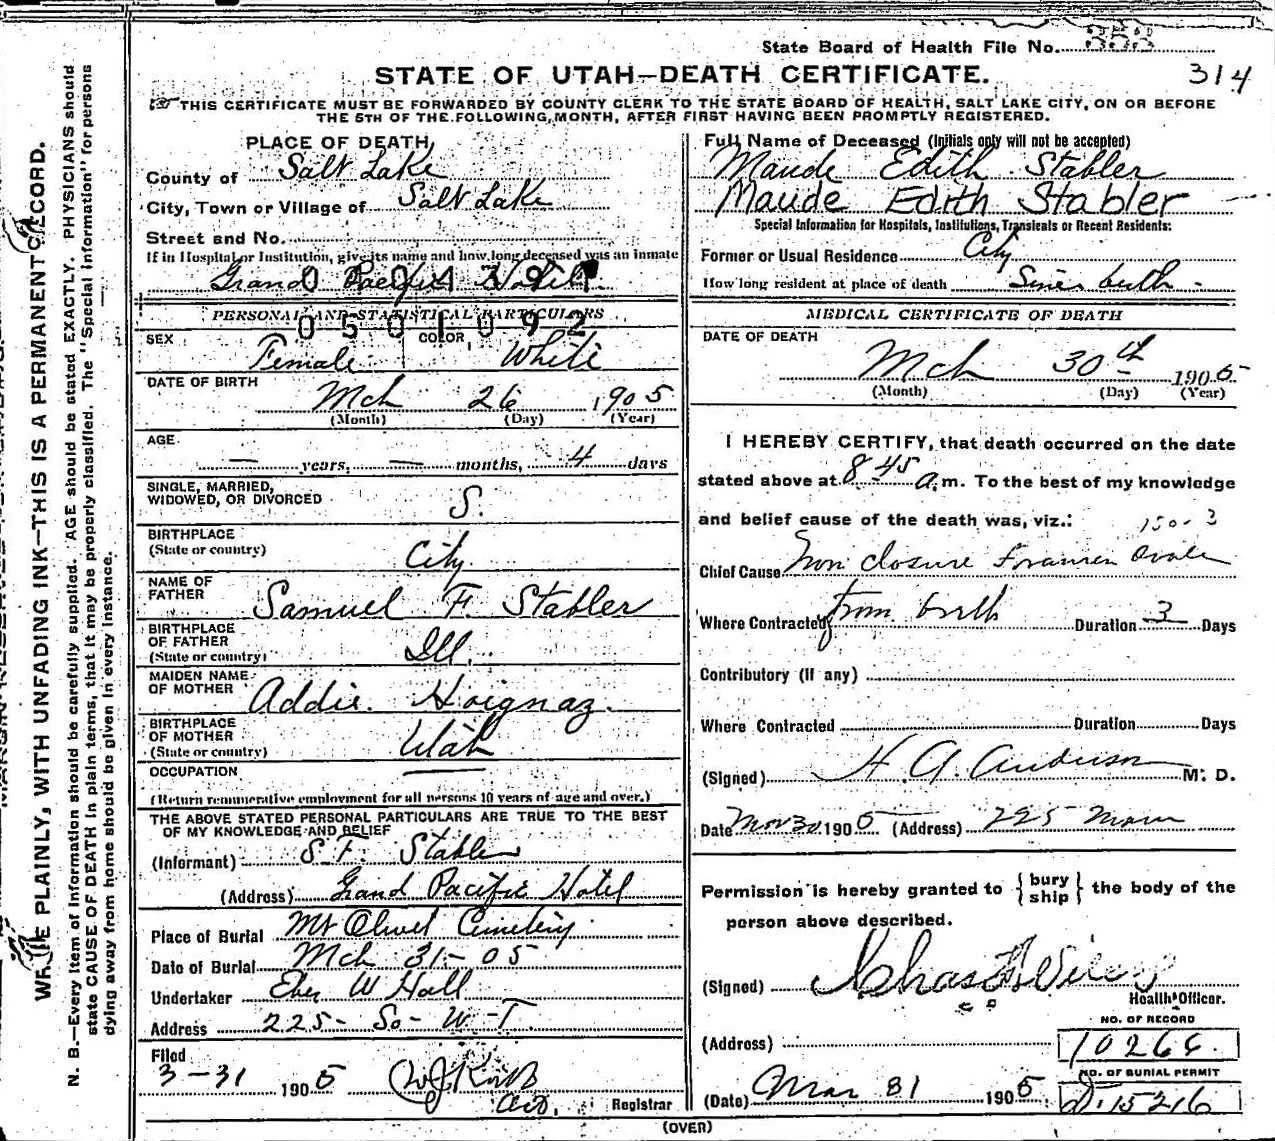 State Board of Health File No. 353
314
STATE OF UTAH—DEATH CERTIFICATE.
THIS CERTIFICATE MUST BE FORWARDED BY COUNTY CLERK TO THE STATE BOARD OF HEALTH, SALT LAKE CITY, ON OR BEFORE
THE 5TH OF THE FOLLOWING MONTH, AFTER FIRST HAVING BEEN PROMPTLY REGISTERED.
WRITE PLAINLY, WITH UNFADING INK—THIS IS A PERMANENT RECORD.
N. B.—Every item of information should be carefully supplied. AGE should be stated EXACTLY. PHYSICIANS should
state CAUSE OF DEATH in plain terms, that it may be properly classified. The "Special Information" for persons
dying away from home should be given in every instance.
PLACE OF DEATH
County of Salt Lake
City, Town or Village of Salt Lake
Street and No.
If in Hospital or Institution, give its name and how long deceased was an inmate
Grand Pacific Hotel
PERSONAL AND STATISTICAL PARTICULARS
0501092
SEX Female COLOR White
DATE OF BIRTH
Mch 26 1905
(Month) (Day) (Year)
AGE
— years, — months, 4 days
SINGLE, MARRIED,
WIDOWED, OR DIVORCED S.
BIRTHPLACE
(State or country) City
NAME OF
FATHER Samuel F. Stabler
BIRTHPLACE
OF FATHER
(State or country) Ill.
MAIDEN NAME
OF MOTHER Addie Hoignaz.
BIRTHPLACE
OF MOTHER
(State or country) Utah
OCCUPATION —
(Return remunerative employment for all persons 10 years of age and over.)
THE ABOVE STATED PERSONAL PARTICULARS ARE TRUE TO THE BEST
OF MY KNOWLEDGE AND BELIEF
(Informant) S. F. Stabler
(Address) Grand Pacific Hotel
Place of Burial Mt Olivet Cemetery
Date of Burial Mch 31 - 05
Undertaker Eber W Hall
Address 225 - So - W - T.
Filed
3-31 1905
Registrar
Full Name of Deceased (Initials only will not be accepted)
Maude Edith Stabler
Maude Edith Stabler
Special Information for Hospitals, Institutions, Transients or Recent Residents:
Former or Usual Residence City
How long resident at place of death Since birth -
MEDICAL CERTIFICATE OF DEATH
DATE OF DEATH
Mch 30th 1905
(Month) (Day) (Year)
I HEREBY CERTIFY, that death occurred on the date
stated above at 8 45 a.m. To the best of my knowledge
and belief cause of the death was, viz.:
150-3
Chief Cause Non closure Foramen Ovale
Where Contracted from birth Duration 3 Days
Contributory (If any)
Where Contracted Duration Days
(Signed) H. A. Anderson M. D.
Date 30 1905 (Address) 225 Main
Permission is hereby granted to { bury ship } the body of the
person above described.
(Signed) Chas
Health Officer.
NO. OF RECORD
(Address) 10266.
NO. OF BURIAL PERMIT
(Date) Mar 31 1905 D. 15216
(OVER)